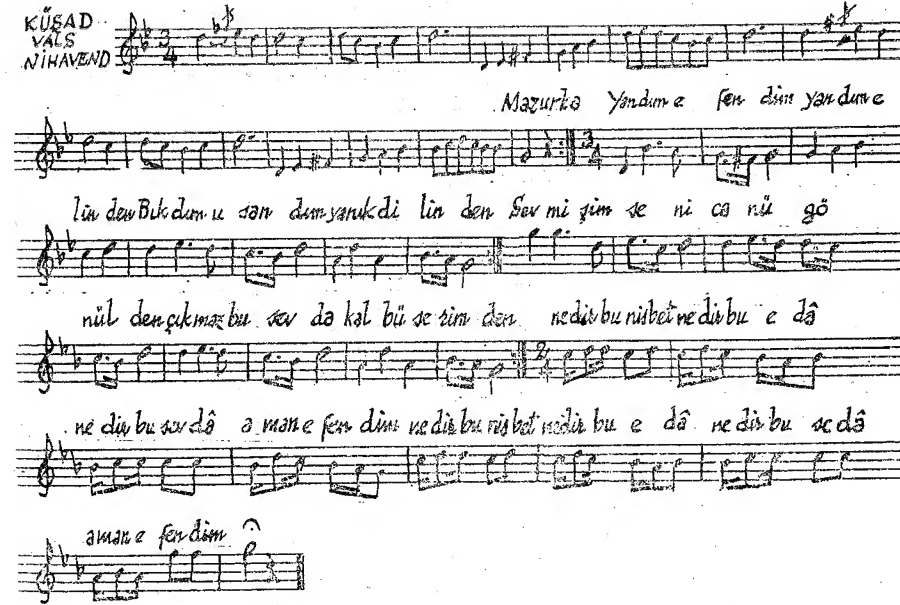 KÜŞAD
VALS
NİHAVEND
3
4
Mazurka Yandım e fen dim yandım e
3
4
lin den Bıkdım u san dım yanıkdi lin den Sev mi şim se ni ca nü gö
nül den çıkmaz bu sev da kal bü se rim den nedir bu nisbet ne dir bu e dâ
2
4
ne dir bu sev dâ a man e fen dim ne dir bu nisbet nedir bu e dâ ne dir bu se dâ
aman e fen dim